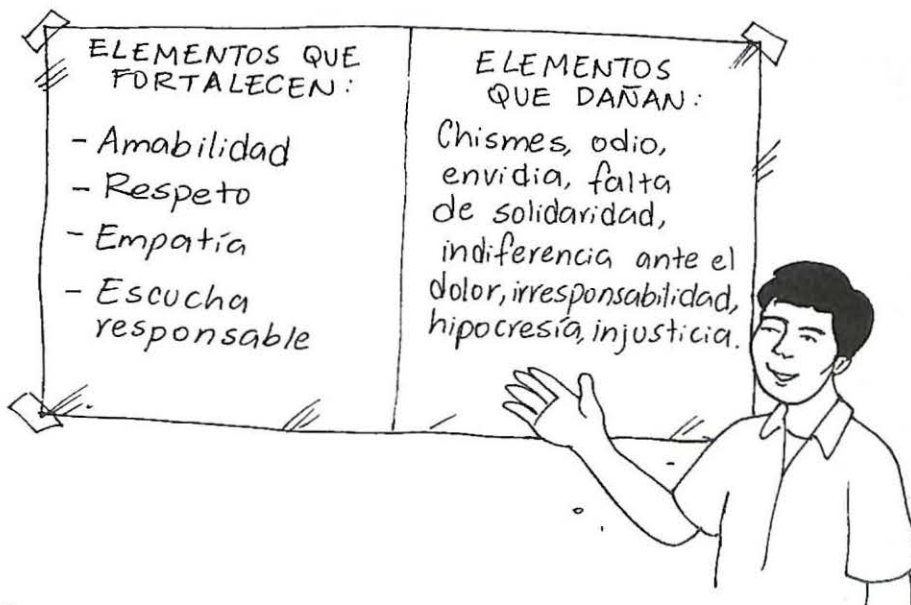 ELEMENTOS QUE
FORTALECEN:
- Amabilidad
- Respeto
- Empatía
- Escucha
responsable
ELEMENTOS
QUE DAÑAN:
Chismes, odio,
envidia, falta
de solidaridad,
indiferencia ante el
dolor, irresponsabilidad,
hipocresía, injusticia.